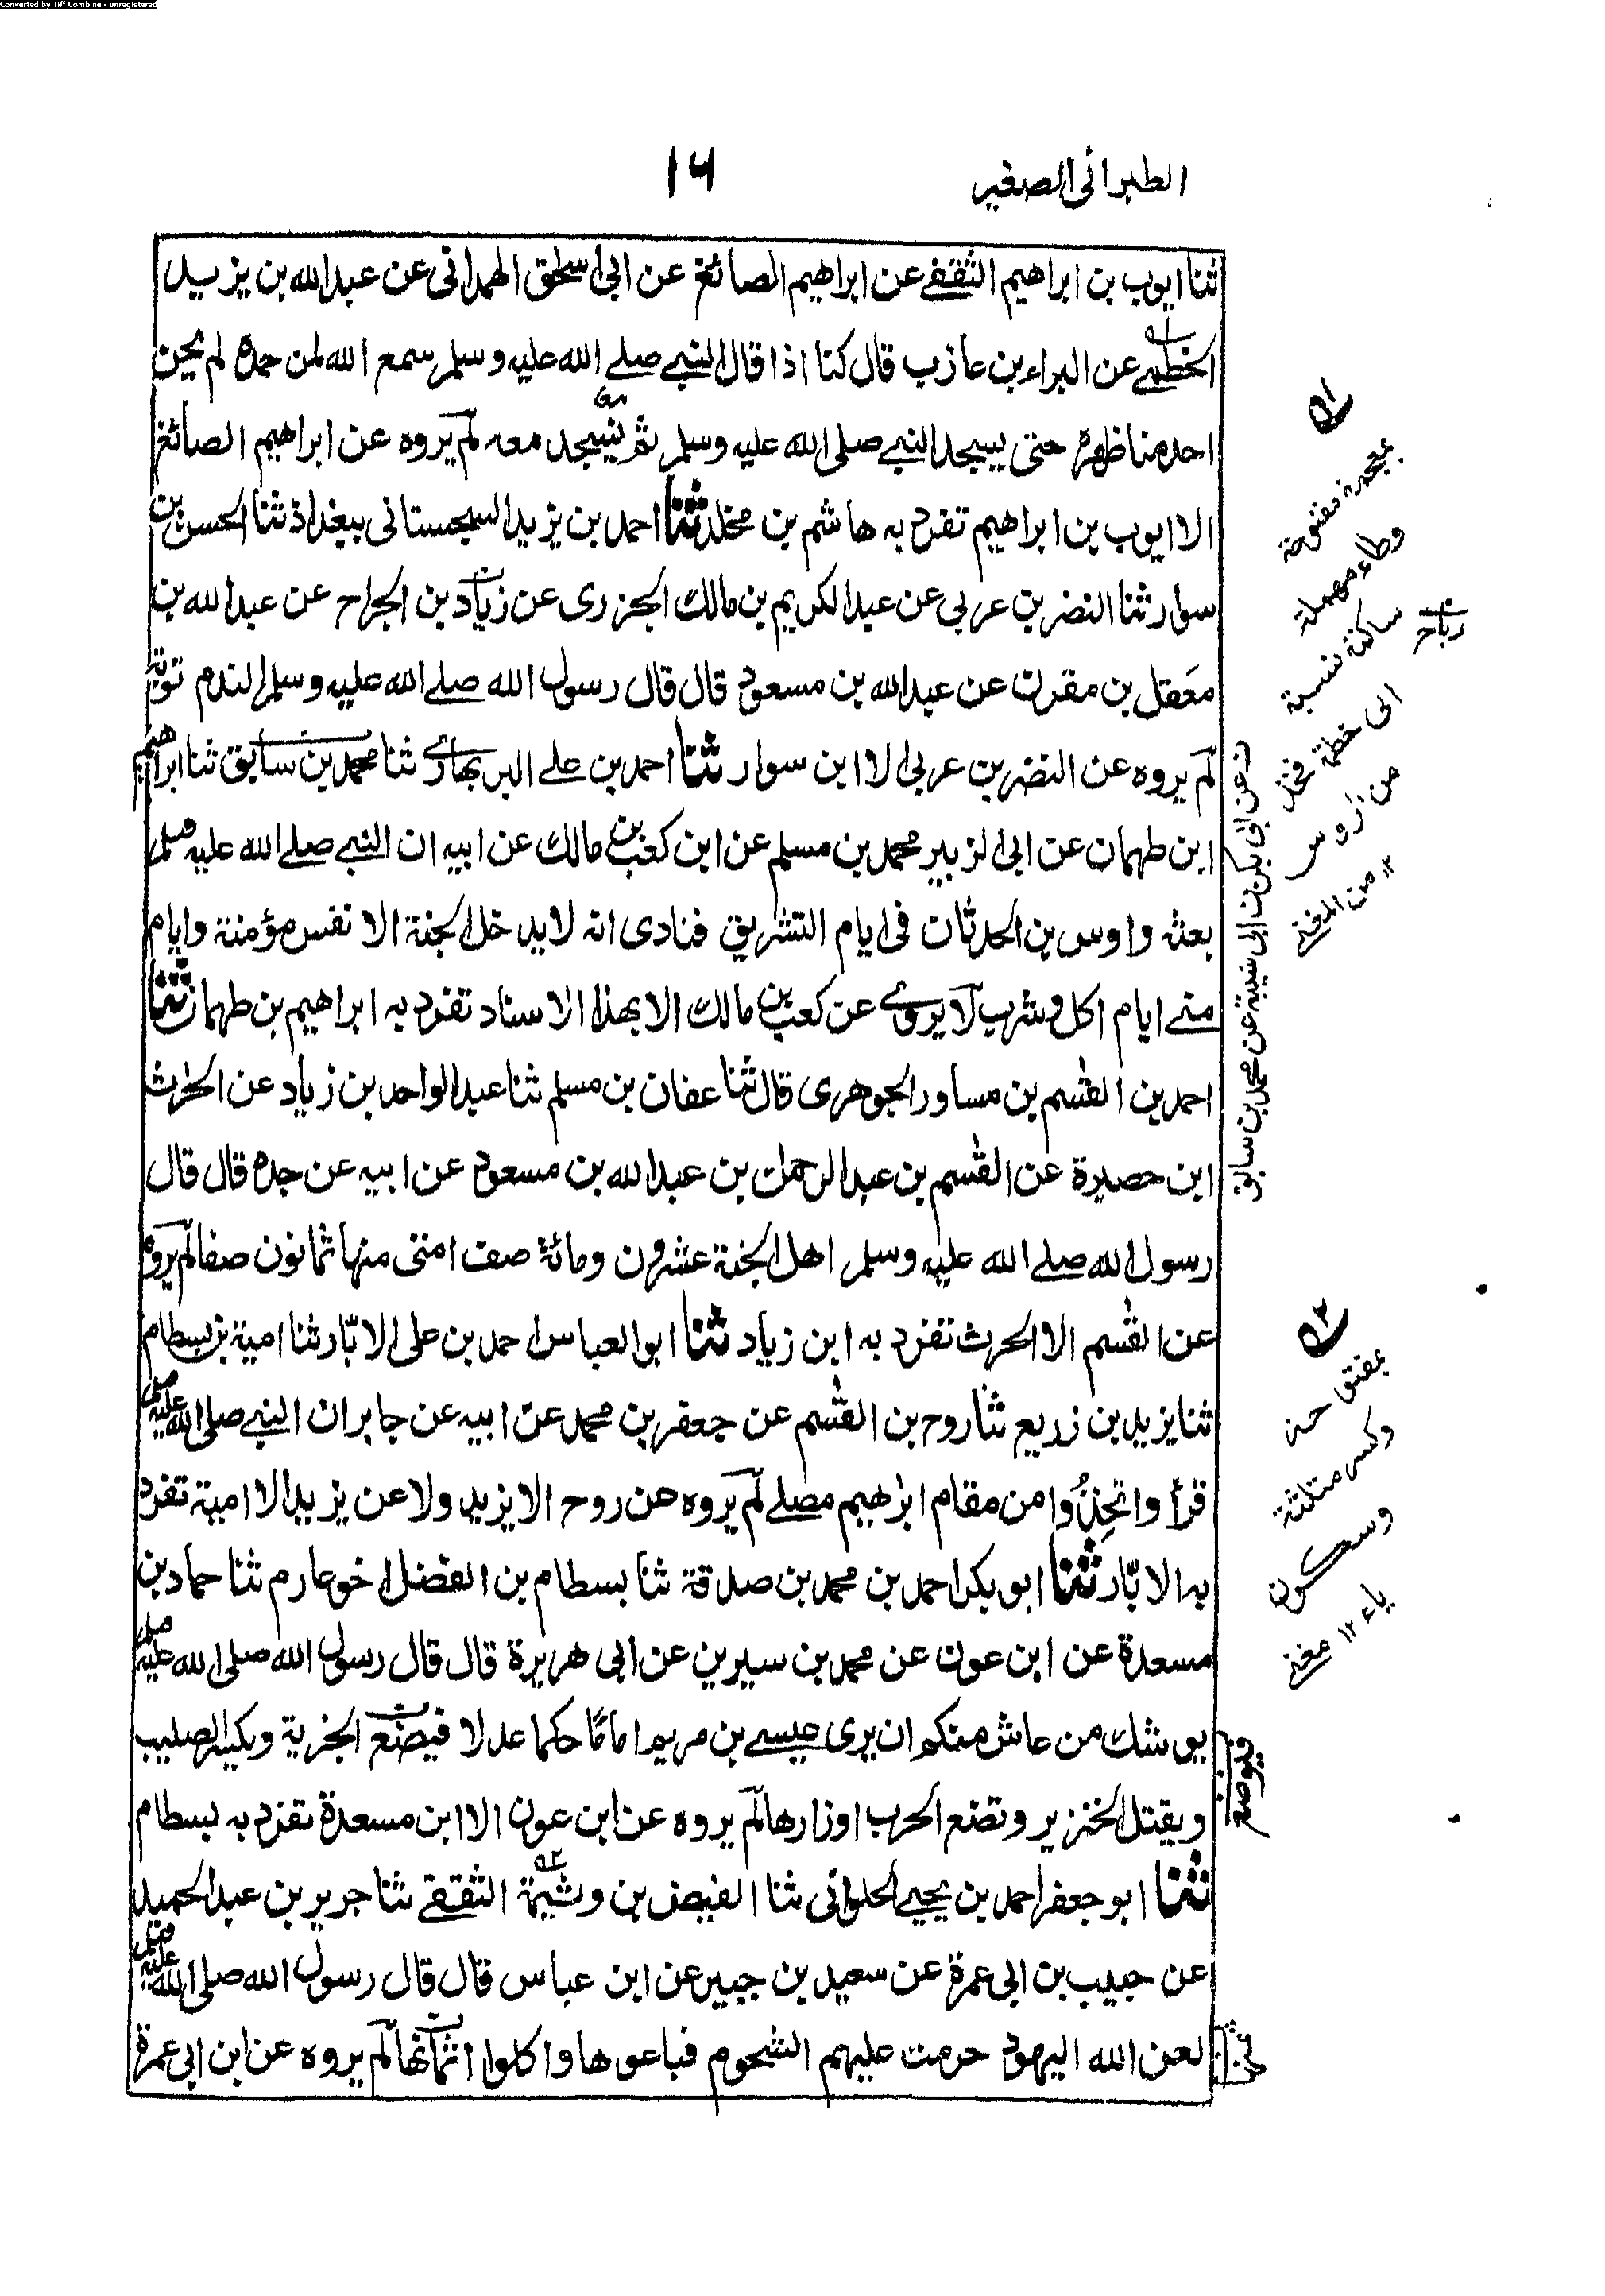 Converted by Tiff Combine - unregistered
الطبرانى الصغير
١٦
ثنا ايوب بن ابراهيم الثقفے عن ابراهيم الصائغ عن ابى اسحٰق الهمدانى عن عبدالله بن يزيد
الخطمے عن البراء بن عازب قال كنا اذا قال النبے صلے الله عليه وسلم سمع الله لمن حمده لم يحن
احد منا ظهره حتى يسجد النبے صلى الله عليه وسلم ثم نسجد معه لم يروه عن ابراهيم الصائغ
الا ايوب بن ابراهيم تفرد به هاشم بن مخلد ثنا احمد بن يزيد السجستانى ببغداذ ثنا الحسن بن
سوار ثنا النضر بن عربي عن عبد الكريم بن مالك الجزرى عن زياد بن الجراح عن عبد الله بن
معقل بن مقرن عن عبد الله بن مسعود قال قال رسول الله صلے الله عليه وسلم الندم توبة
لم يروه عن النضر بن عربى الا ابن سوار ثنا احمد بن علے البربهارے ثنا محمد بن سابق ثنا ابراهيم
ابن طهمان عن ابى الزبير محمد بن مسلم عن ابن كعب بن مالك عن ابيه ان النبے صلے الله عليه وسلم
بعثه واوس بن الحدثان فى ايام التشريق فنادى انه لا يدخل الجنة الا نفس مؤمنة وايام
منے ايام اكل وشرب لا يروے عن كعب بن مالك الا بهذا الاسناد تفرد به ابراهيم بن طهمان ثنا
احمد بن القٰسم بن مساور الجوهرى قال ثنا عفان بن مسلم ثنا عبد الواحد بن زياد عن الحٰرث
ابن حصيرة عن القٰسم بن عبد الرحمٰن بن عبد الله بن مسعود عن ابيه عن جده قال قال
رسول الله صلے الله عليه وسلم اهل الجنة عشرون ومائة صف امتى منها ثمانون صفا لم يروه
عن القٰسم الا الحرث تفرد به ابن زياد ثنا ابو العباس احمد بن على الابّار ثنا امية بن بسطام
ثنا يزيد بن زريع ثنا روح بن القٰسم عن جعفر بن محمد عن ابيه عن جابر ان النبے صلى الله عليه وسلم
قرأ واتخِذُوا من مقام ابرٰهيم مصلے لم يروه عن روح الا يزيد ولا عن يزيد الا امية تفرد
به الابّار ثنا ابو بكر احمد بن محمد بن صدقة ثنا بسطام بن الفضل اخو عارم ثنا حماد بن
مسعدة عن ابن عون عن محمد بن سيرين عن ابى هريرة قال قال رسول الله صلى الله عليه وسلم
يوشك من عاش منكم ان يرى عيسے بن مريم اماما حكما عدلا فيضع الجزية ويكسر الصليب
ويقتل الخنزير وتضع الحرب اوزارها لم يروه عن ابن عون الا ابن مسعدة تفرد به بسطام
ثنا ابو جعفر احمد بن يحيے الحلوانى ثنا الفيض بن وثيمة الثقفے ثنا جرير بن عبد الحميد
عن حبيب بن ابى عمرة عن سعيد بن جبير عن ابن عباس قال قال رسول الله صلى الله عليه وسلم
لعن الله اليهود حرمت عليهم الشحوم فباعوها واكلوا اثمانها لم يروه عن ابن ابى عمرة
بمعجمة مفتوحة
وطاء مهملة
ساكنة نسبة
الى خطمة فخذ
من اوس
١٢ من المغنے
رباح
عن ابى بكر بن ابى شيبة عن محمد بن سابق
وكسر مثلثة
وسكون
ياء ١٢ مغنے